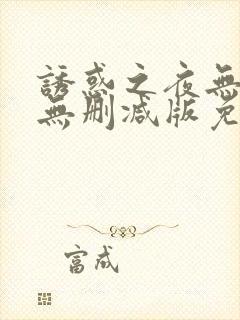 誘惑之夜無
無删减版免
富成